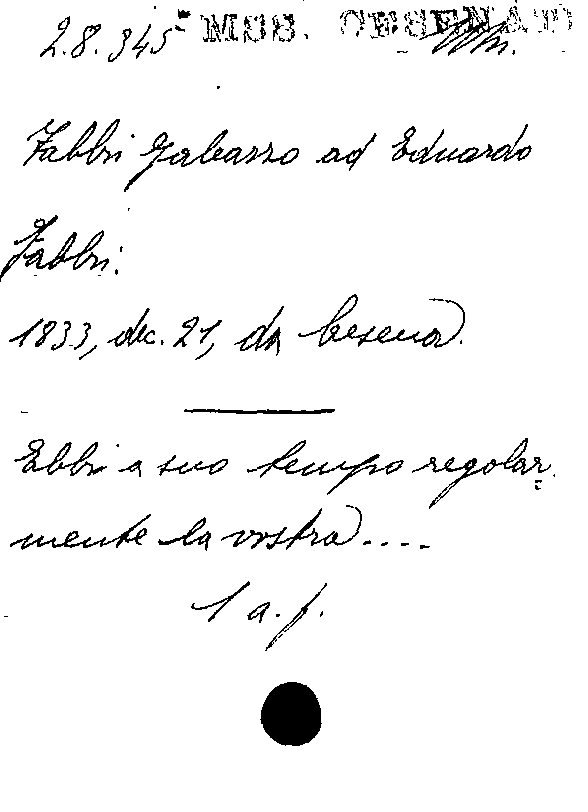 2.8.345 MSS. CESENATI
Fabbri Galeazzo ad Eduardo
Fabbri.
1833, dec. 21, da Cesena.
Ebbi a suo tempo regolar
mente la vostra....
1 a. f.